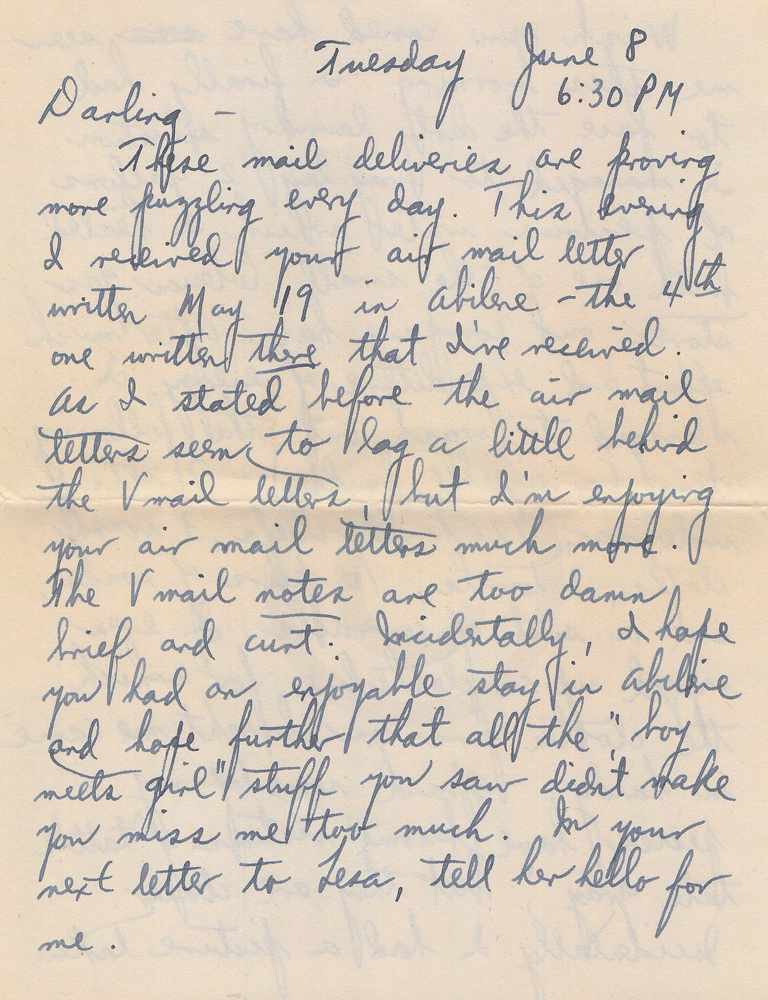 Tuesday June 8
6:30 PM
Darling -
These mail deliveries are proving
more puzzling every day. This evening
I received your air mail letter
written May 19 in Abilene - the 4th
one written there that I've received.
As I stated before the air mail
letters seem to lag a little behind
the V mail letters, but I'm enjoying
your air mail letters much more.
The V mail notes are too damn
brief and curt. Incidentally, I hope
you had an enjoyable stay in Abilene
and hope further that all the "boy
meets girl" stuff you saw didn't make
you miss me too much. In your
next letter to Lesa, tell her hello for
me.